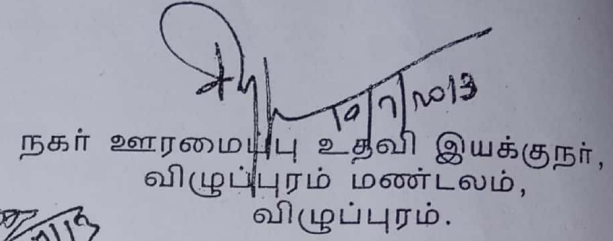 19/7/2013
நகர் ஊரமைப்பு உதவி இயக்குநர்,
விழுப்புரம் மண்டலம்,
விழுப்புரம்.